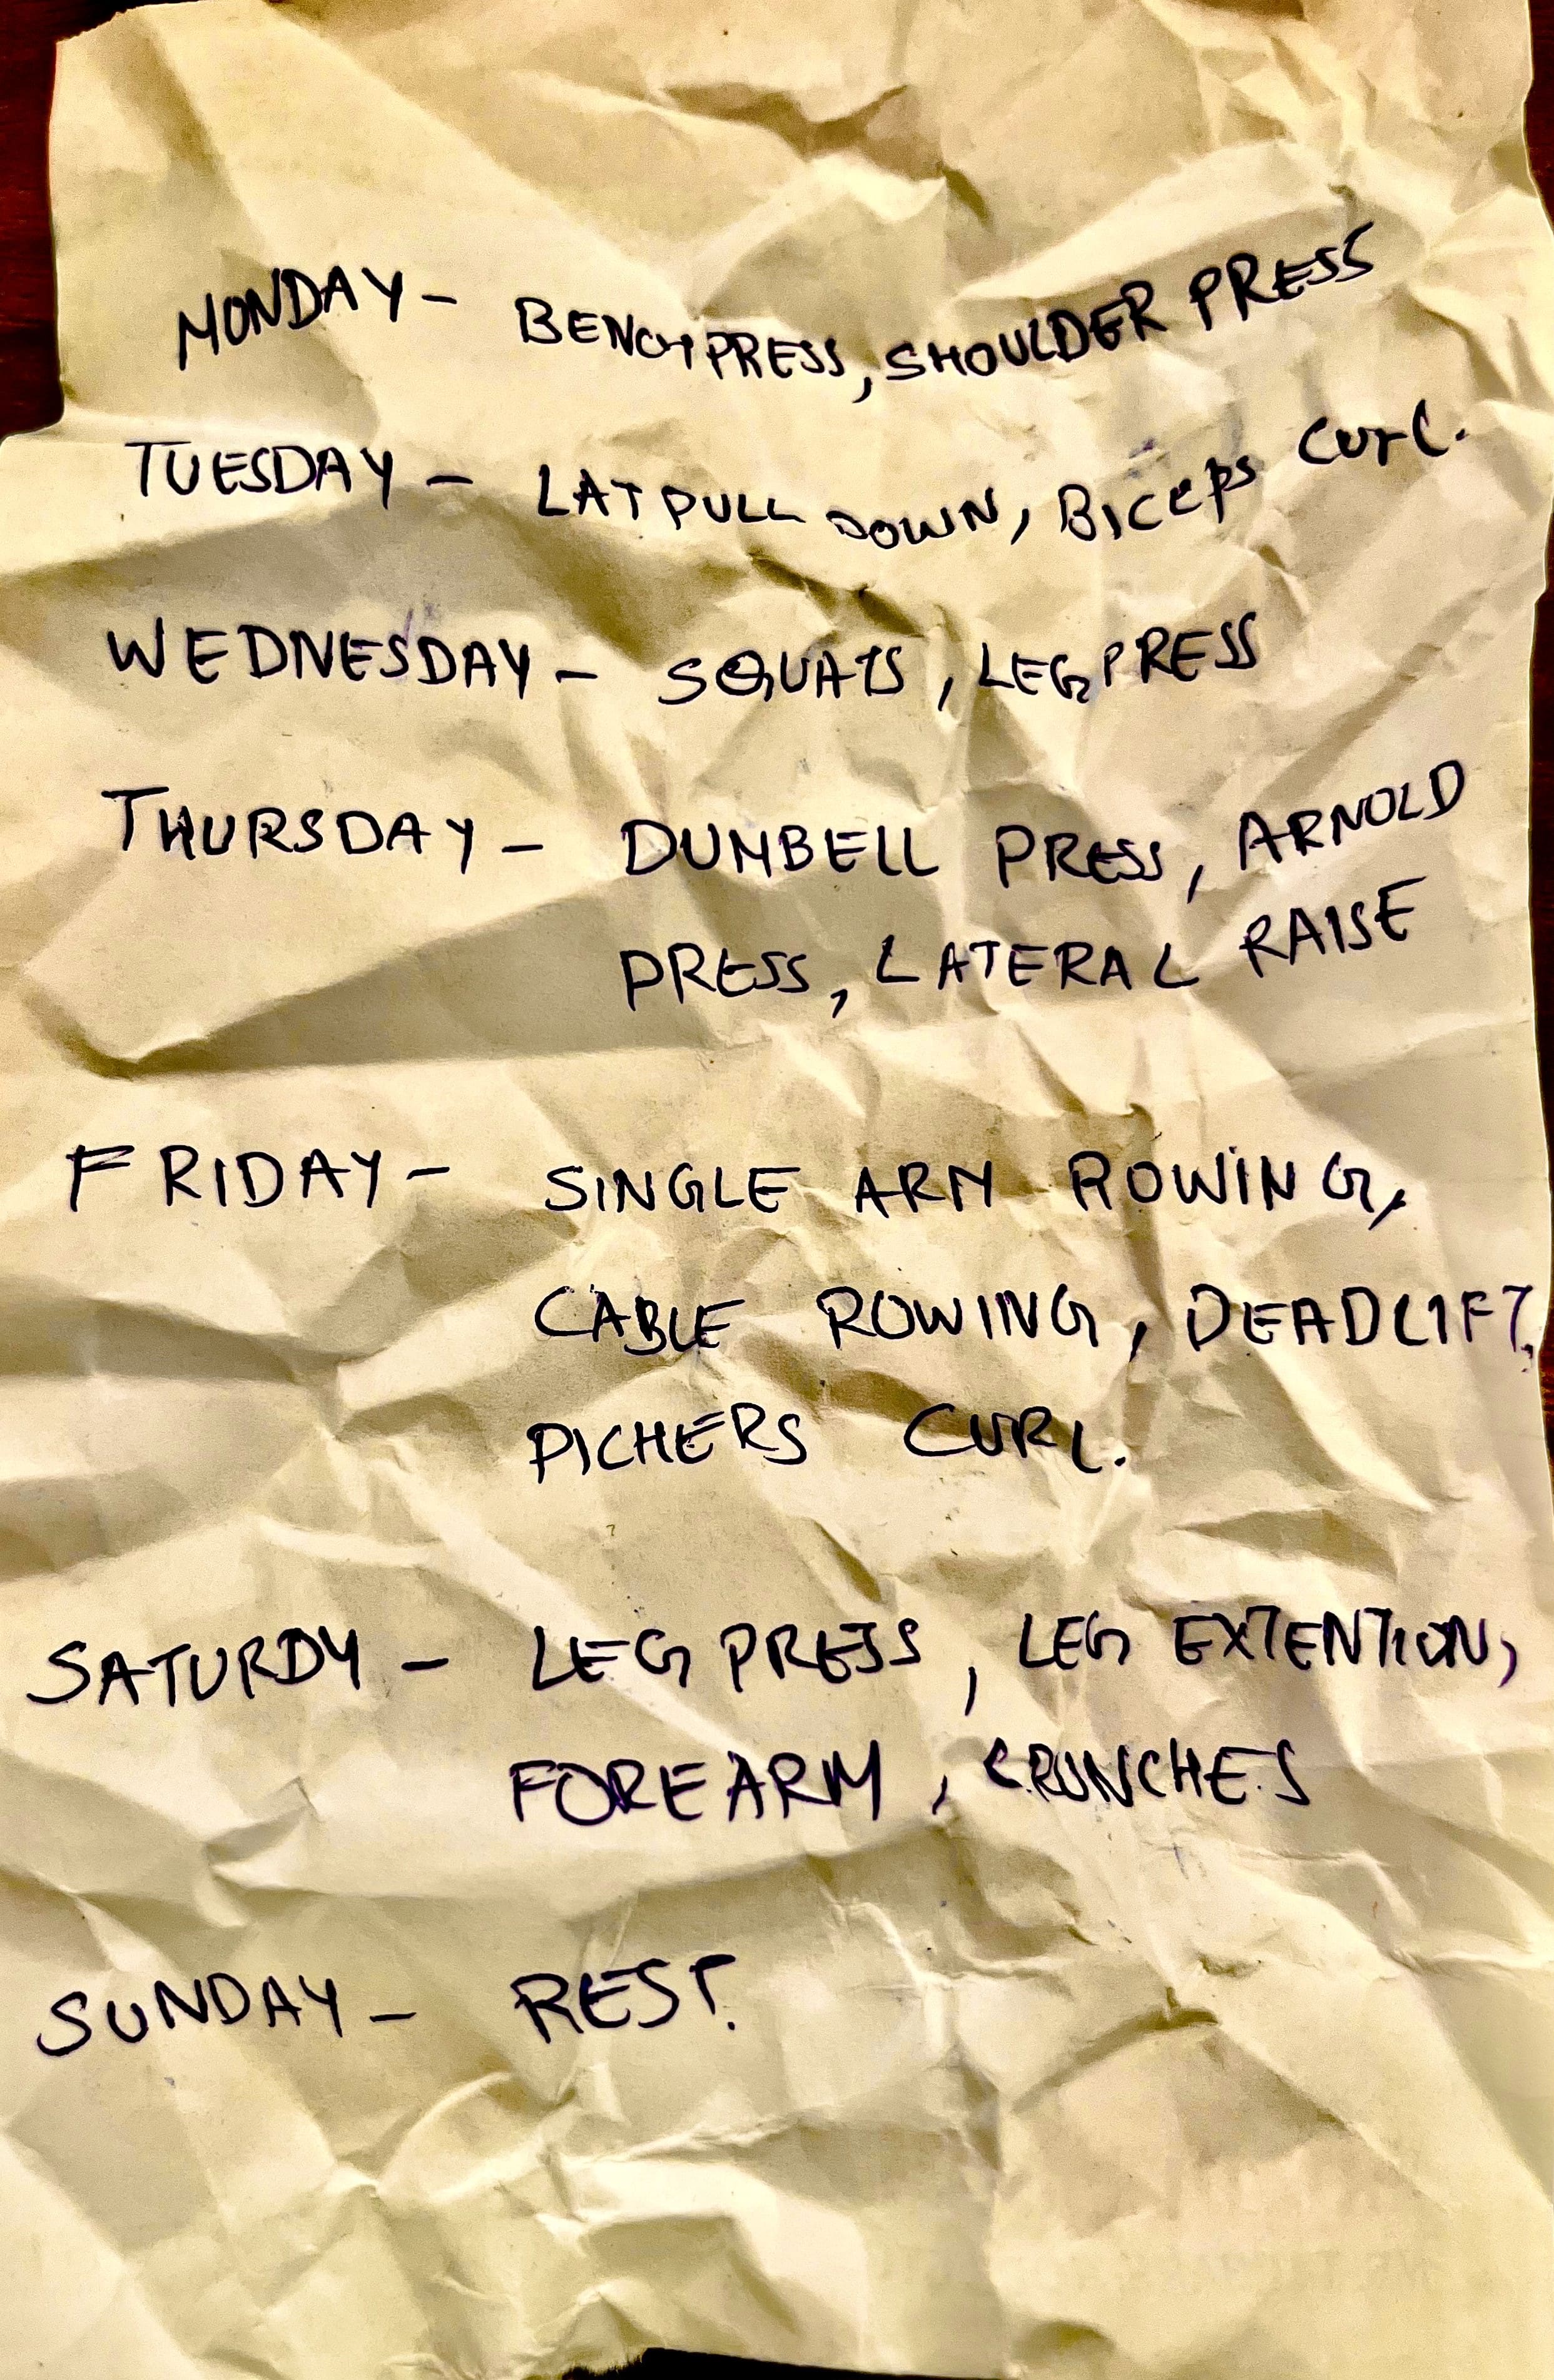 MONDAY - BENCHPRESS, SHOULDER PRESS
TUESDAY - LAT PULL DOWN, BICEPS CURL.
WEDNESDAY - SQUATS, LEG PRESS
THURSDAY - DUMBELL PRESS, ARNOLD
PRESS, LATERAL RAISE
FRIDAY - SINGLE ARM ROWING,
CABLE ROWING, DEADLIFT,
PICHERS CURL.
SATURDY - LEG PRESS, LEG EXTENTION,
FOREARM, CRUNCHES
SUNDAY - REST.